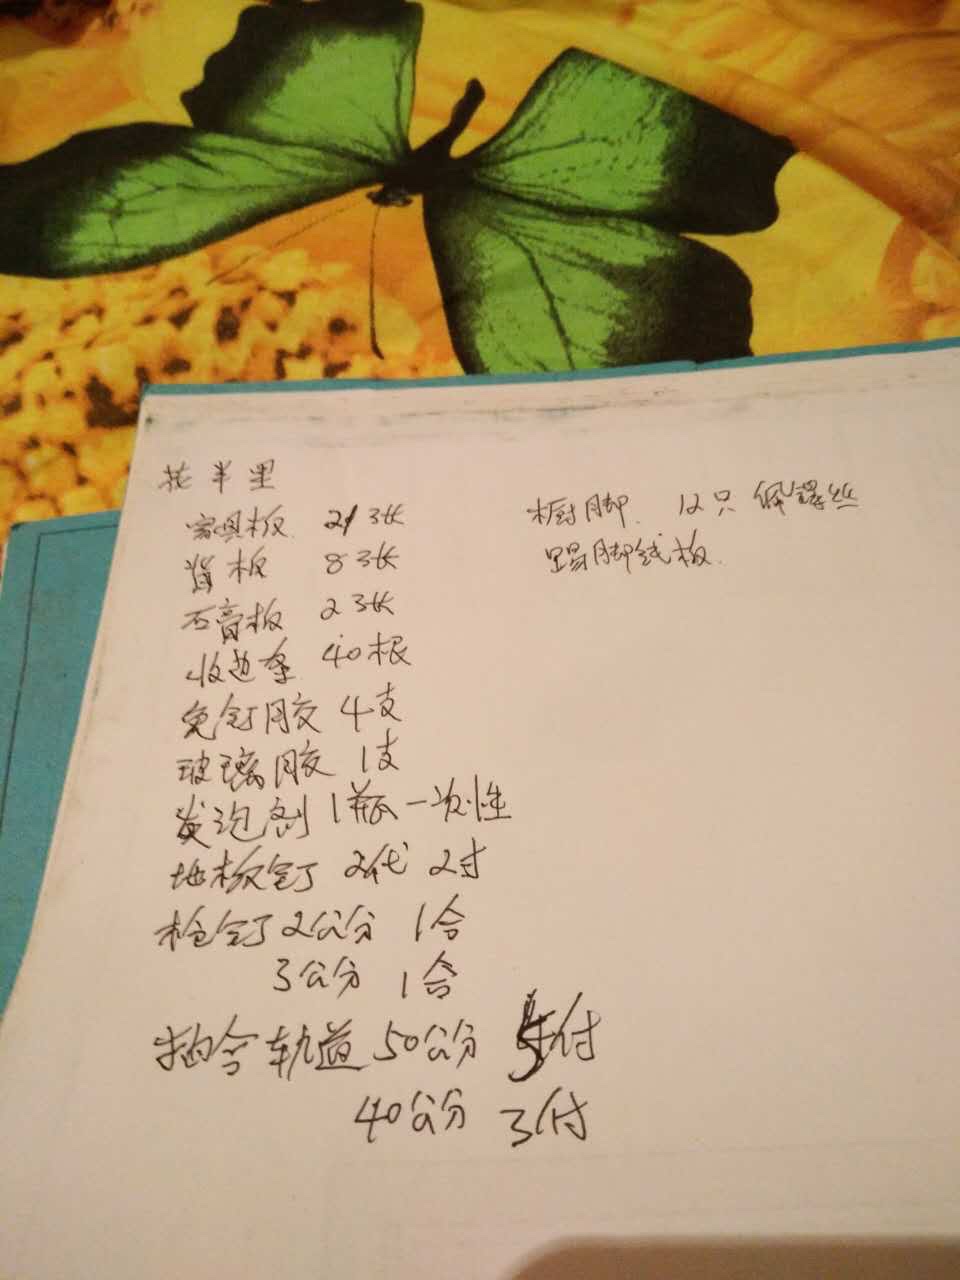 花半里
家具板 21张
背板 8张
石膏板 2张
收边条 40根
免钉胶 4支
玻璃胶 1支
发泡剂 1瓶 一次性
地板钉 2代 2寸
枪钉 2公分 1合
3公分 1合
抽合轨道 50公分 付
40公分 3付
橱脚. 12只 保螺丝
踢脚线板.